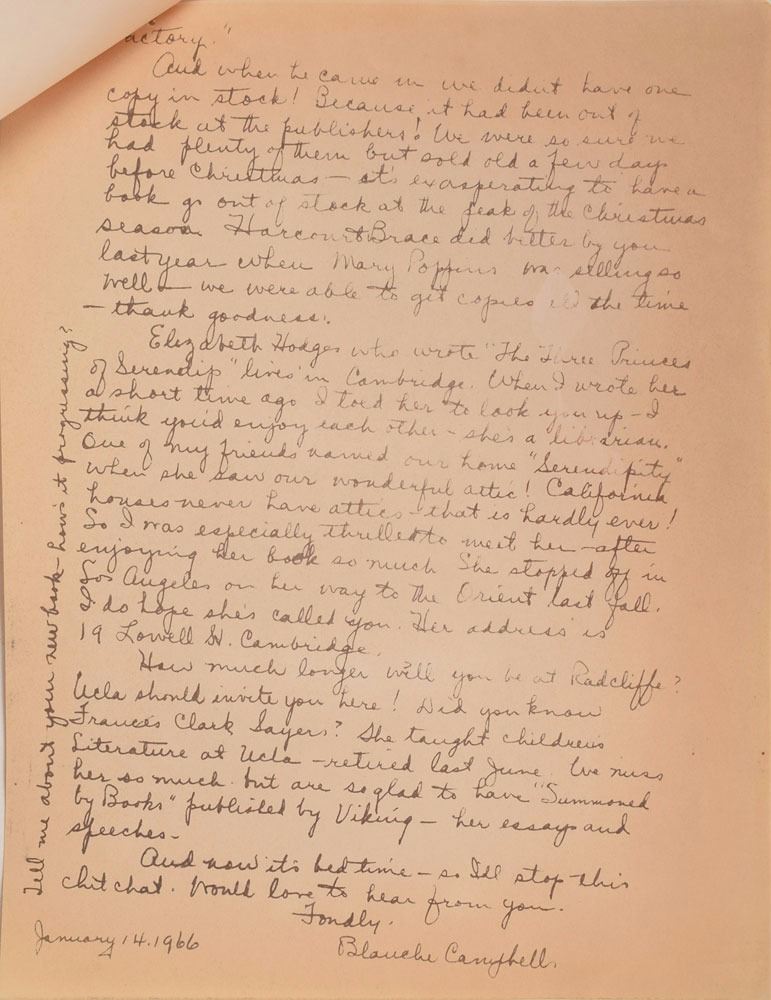 actory."
And when he came in we didn't have one
copy in stock! Because it had been out of
stock at the publishers! We were so sure we
had plenty of them but sold old a few days
before Christmas — it's exasperating to have a
book go out of stock at the peak of the Christmas
season. Harcourt Brace did better by you
last year when Mary Poppins was selling so
well — we were able to get copies all the time
— thank goodness!
Elizabeth Hodges who wrote "The Three Princes
of Serendip" lives in Cambridge. When I wrote her
a short time ago I told her to look you up — I
think you'd enjoy each other — she's a librarian.
One of my friends named our home "Serendipity"
when she saw our wonderful attic! California
houses never have attics — that is hardly ever!
So I was especially thrilled to meet her — after
enjoying her book so much She stopped off in
Los Angeles on her way to the Orient last fall.
I do hope she's called you. Her address is
19 Lowell St. Cambridge.
How much longer will you be at Radcliffe?
Ucla should invite you here! Did you know
Frances Clark Sayers? She taught children's
Literature at Ucla — retired last June. We miss
her so much but are so glad to have "Summoned
by Books" published by Viking — her essays and
speeches —
And now it's bedtime — so I'll stop this
chit chat. Would love to hear from you.
Fondly,
Blanche Campbell.
January 14. 1966
Tell me about your new book — how's it progressing?